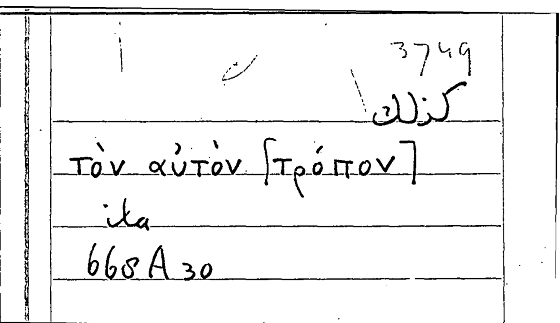 3749
كذلك
τὸν αὐτὸν [τρόπον]
ita
668A30